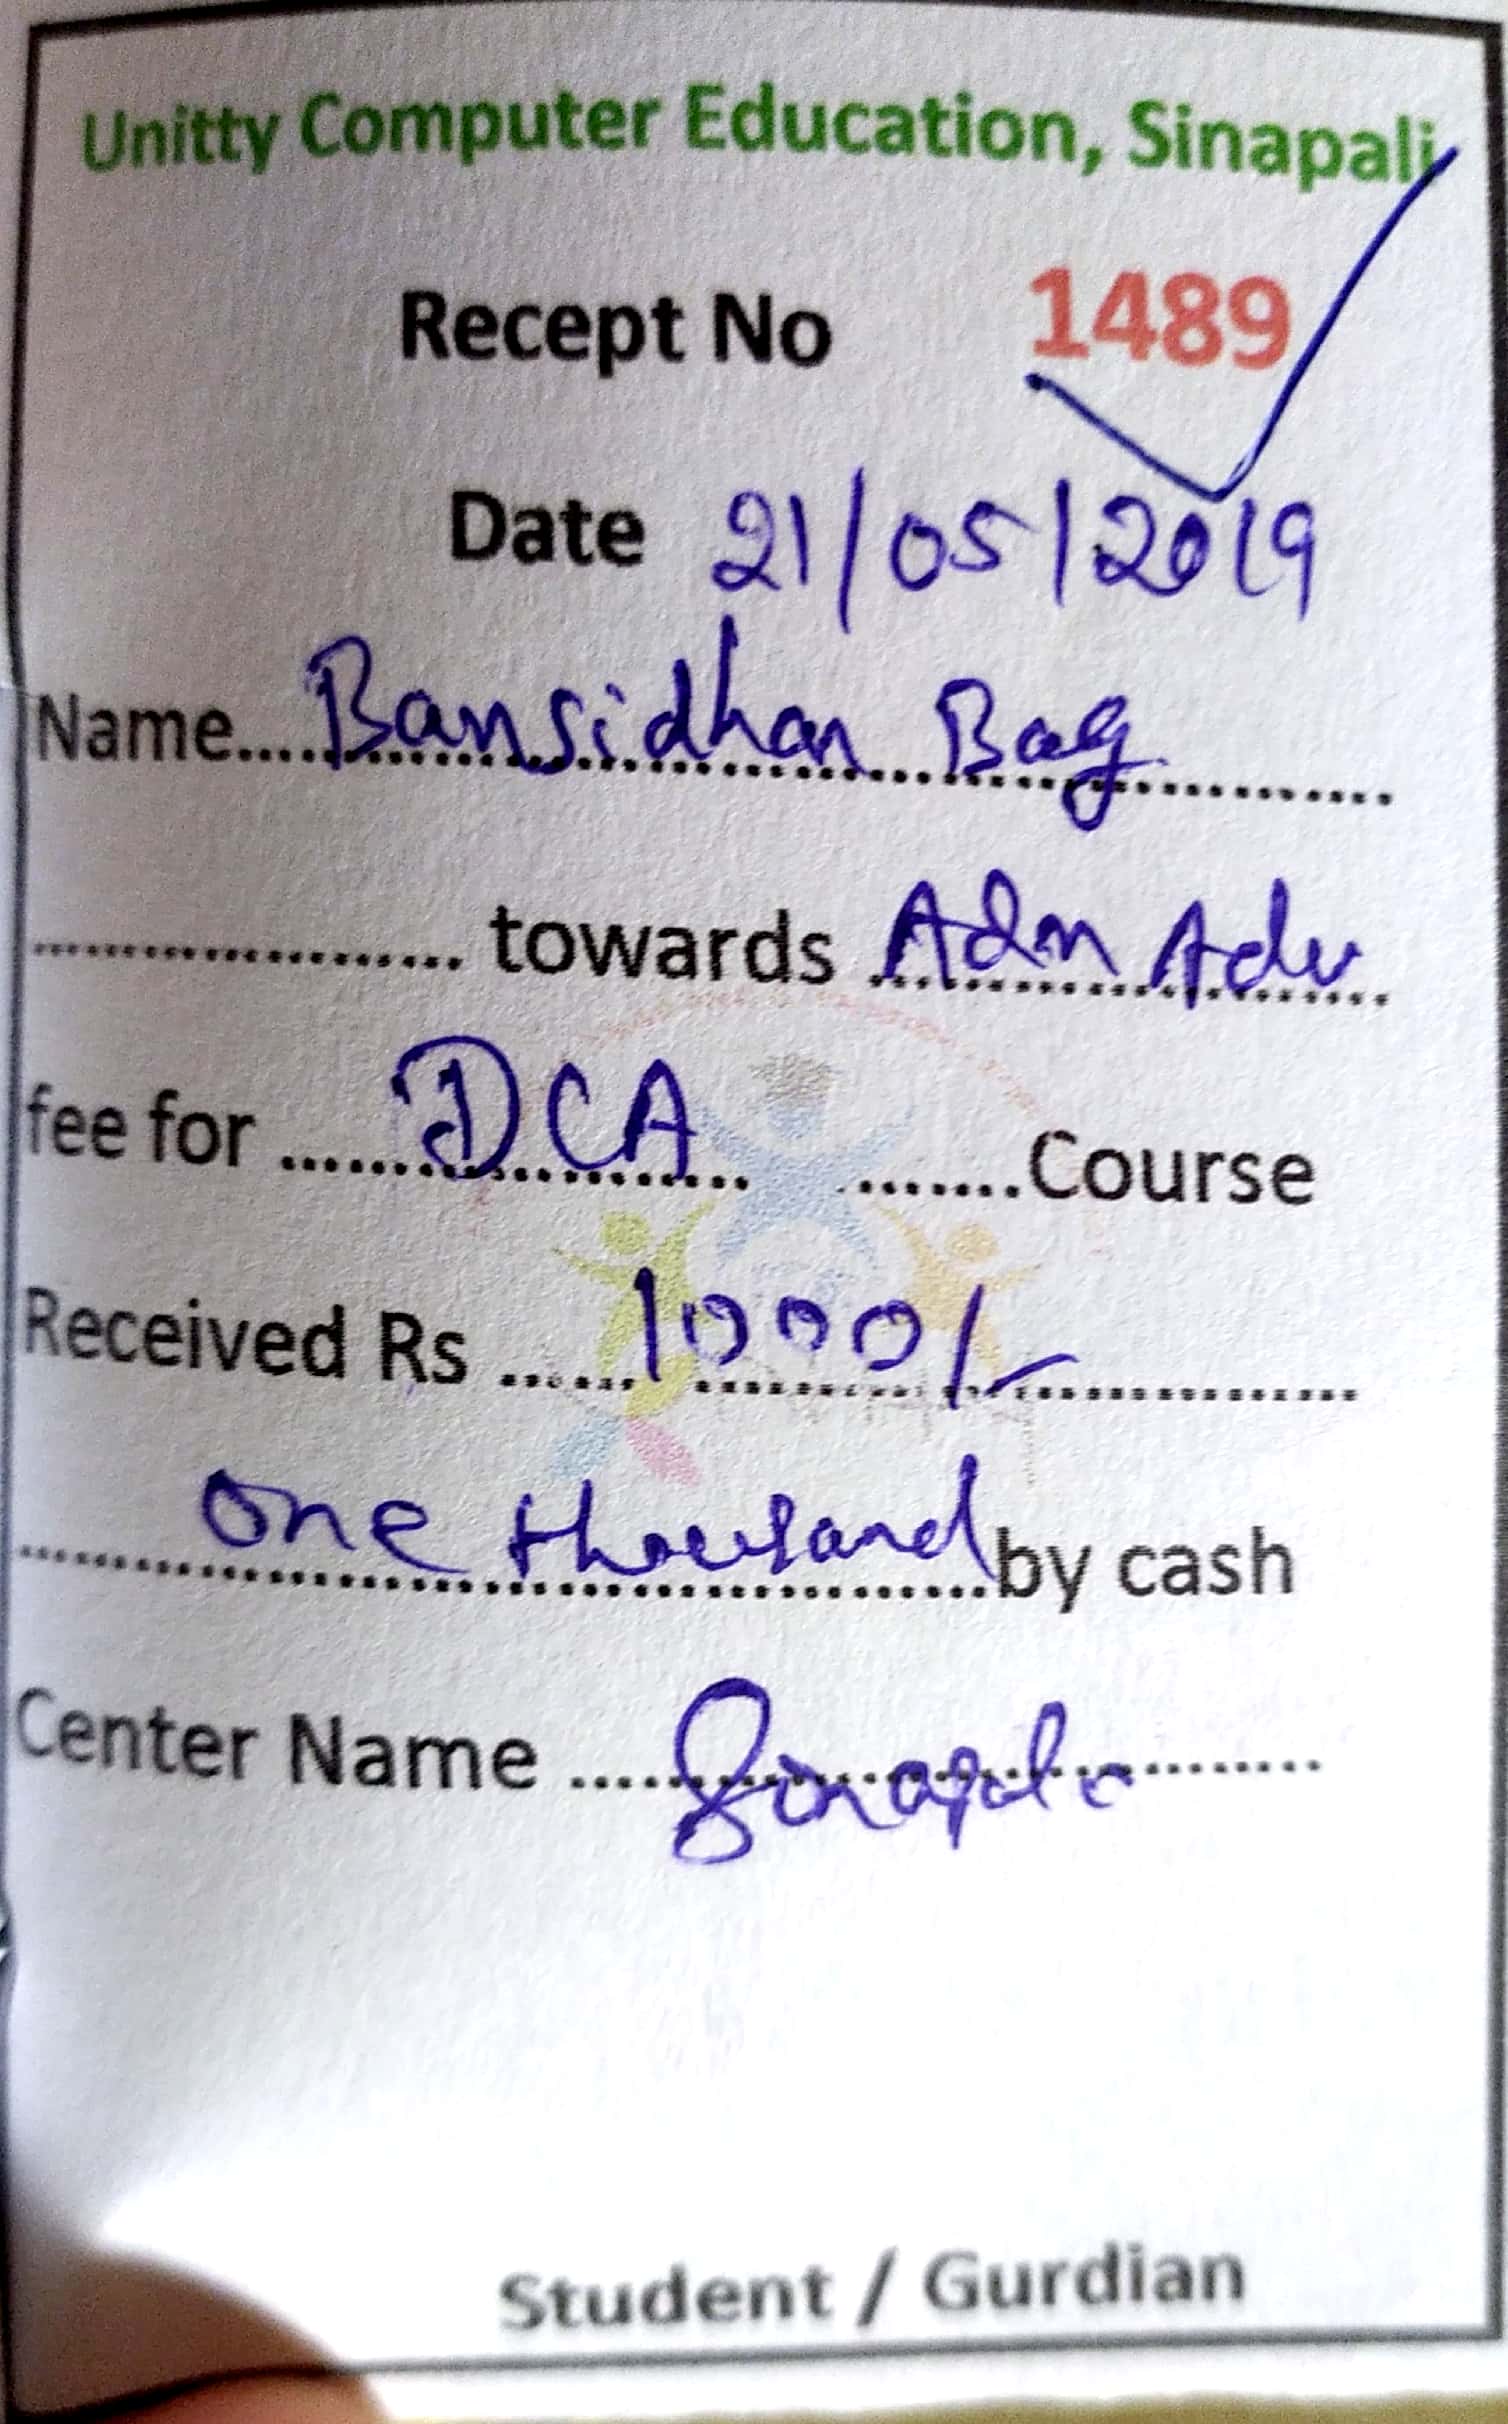 Unitty Computer Education, Sinapali
Recept No 1489
Date 21/05/2019
Name.... Bansidhar Bag
towards Adm Adv
fee for DCA Course
Received Rs 1000/-
One thousand by cash
Center Name Sinapali
Student / Gurdian